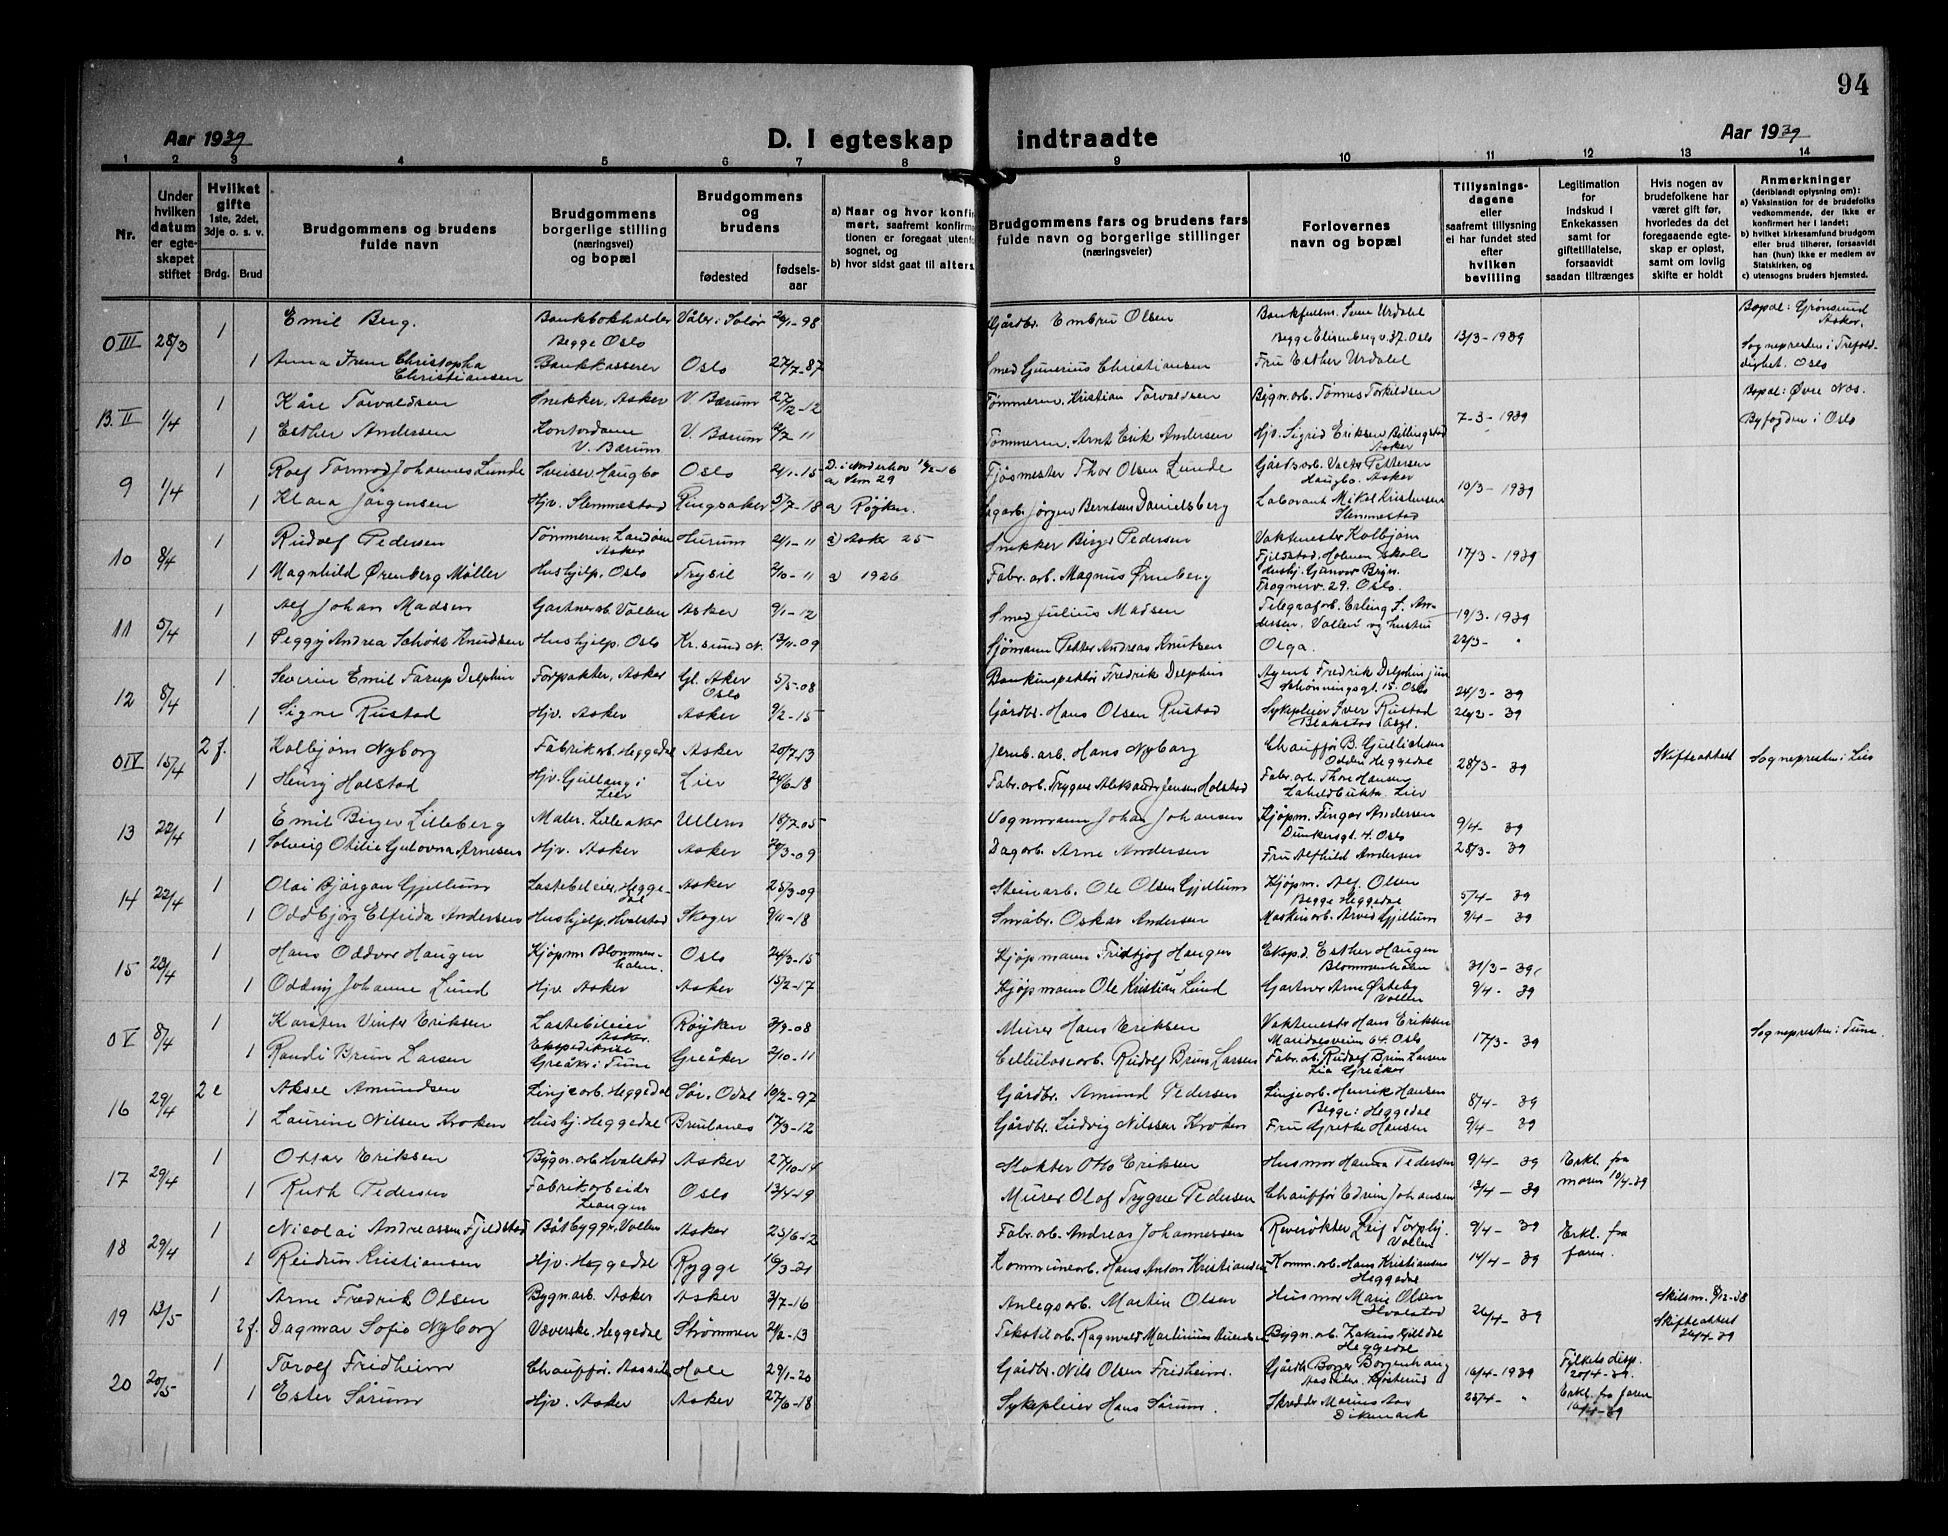 94
Aar 1939
D. I egteskap indtraadte
Aar 1939
1 2 3 4 5 6 7 8 9 10 11 12 13 14
Nr.
Under hvilken datum er egteskapet stiftet
Hvilket gifte 1ste, 2det, 3dje o. s. v.
Brdg. Brud
Brudgommens og brudens fulde navn
Brudgommens borgerlige stilling (næringsvei) og bopæl
Brudgommens og brudens
fødested
fødselsaar
a) Naar og hvor konfirmert, saafremt konfirmationen er foregaat utenfor sognet, og
b) hvor sidst gaat til alters.
Brudgommens fars og brudens fars fulde navn og borgerlige stillinger (næringsveier)
Forlovernes navn og bopæl
Tillysningsdagene eller saafremt tillysning ei har fundet sted efter hvilken bevilling
Legitimation for Indskud i Enkekassen samt for giftetillatelse, forsaavidt saadan tiltrænges
Hvis nogen av brudefolkene har været gift før, hvorledes da det foregaaende egteskap er opløst, samt om lovlig skifte er holdt
Anmerkninger (deriblandt oplysning om):
a) Vaksination for de brudefolks vedkommende, der ikke er konfirmert her i landet;
b) hvilket kirkesamfund brudgom eller brud tilhører, forsaavidt han (hun) ikke er medlem av Statskirken, og
c) utensogns bruders hjemsted.
O III 25/3 1 Emil Berg. Bankbokholder Begge Oslo Våler i Solør 26/1-98 Gårdbr. Embret Olsen Bankfulm. Sven Urdahl Begge Eliesenberg v. 37. Oslo 13/3-1939 Bopæl: Grønsund Asker.
1 Anna Irene Christopha Christiansen Bankkasserer Oslo 27/7-87 Smed Gunerius Christiansen Fru Esther Urdahl Sognepresten i Trefoldighet. Oslo
B. II 1/4 1 Kåre Torvaldsen Snekker, Asker V. Bærum 27/12-12 Tømmerm. Kristian Torvaldsen Bygn. arb. Tønnes Torkildsen 7-3-1939 Bopæl: Øvre Nes.
1 Esther Andersen Kontordame V. Bærum V. Bærum 12/7 11 Tømmerm. Arnt Erik Andersen Hjv. Sigrid Eriksen Billingstad Asker Byfogden i Oslo
9 1/4 1 Rolf Tormod Johannes Lunde Sveiser Haugbo Oslo 21/1-15 a Sem 29 Fjøsmester Thor Olsen Lunde Gårdsarb. Valter Pettersen Haugbo. Asker 10/3-1939
1 Klara Jørgensen Hjv. Slemmestad Ringsaker 5/7-18 a) Røyken. Sagarb. Jørgen Berntsen Danielsberg Laborant Mikal Kristensen Slemmestad
10 8/4 1 Rudolf Pedersen Tømmerm. Landøen Asker Hurum 21/1-11 a) Asker 25 Snekker Birger Pedersen Vaktmester Kolbjørn Fjeldstad. Holmen skole 17/3-1939
1 Magnhild Ørenberg Møller Hushjelp. Oslo Trysil 2/10-11 a) 1926 Fabr. arb. Magnus Ørenberg Hushj. Gunvor Bryn. Frognerv. 29. Oslo.
11 5/4 1 Alf Johan Madsen Gartnerarb. Vollen Asker 9/1-12 Smed Julius Madsen Telegrafarb. Erling S. Andersen. Vollen og hustru 19/3-1939
1 Peggy Andrea Schøth Knudsen Hushjelp. Oslo Kr.sund N. 13/11-09 Sjømann Petter Andreas Knutsen Olga. 22/3- "
12 8/4 1 Severin Emil Farup Delphin Forpakter, Asker Gl. Aker Oslo 5/5-08 Bankinspektør Fredrik Delphin Agent Fredrik Delphin jun Schønningsgt. 15. Oslo 24/3-39
1 Signe Rustad Hjv. Asker Asker 9/2-15 Gårdbr. Hans Olsen Rustad Sykepleier Iver Rustad Blakstad Asyl. 26/3-39
O IV 15/4 2 f. Kolbjørn Nyborg Fabrikarb. Heggedal Asker 20/7-13 Jernb. arb. Hans Nyborg Chauffør B. Gulliksen Odden Heggedal 28/3-39 Skifteattest Sognepresten i Lier
1 Henry Holstad Hjv. Gullaug i Lier Lier 24/6-18 Fabr. arb. Trygve Aleksander Jensen Holstad Fabr. arb. Thore Hansen Lahellbukta. Lier
13 22/4 1 Emil Birger Lilleberg Maler. Lilleaker Ullern 18/7-05 Vognmann Johan Johansen Kjøpm. Fingar Andersen Dunkersgt. 4. Oslo 9/4-39
1 Solveig Otilie Gulovna Arnesen Hjv. Asker Asker 24/3-09 Dagarb. Arne Andersen Fru Alfhild Andersen 28/3-39
14 22/4 1 Olai Bjørgan Gjellum Lastebileier, Heggedal Asker 25/3-09 Steinarb. Ole Olsen Gjellum Kjøpm. Alf. Olsen Begge Heggedal 5/4-39
1 Oddbjørg Elfrida Andersen Hushjelp, Hvalstad Skoger 9/11-18 Småbr. Oskar Andersen Maskinarb. Arvid Gjellum 9/4-39
15 23/4 1 Hans Oddvar Haugen Kjøpm. Blommenholm. Oslo 24/3-15 Kjøpmann Fridtjof Haugen Eksp.d. Esther Haugen Blommenholm 31/3-39
1 Oddny Johanne Lund Hjv. Asker Asker 15/2-17 Kjøpmann Ole Kristian Lund Gartner Arne Østeby Vollen 9/4-39
O V 8/4 1 Karsten Vinfer Eriksen Lastebileier Asker. Røyken 3/9-08 Murer Hans Eriksen Vaktmester Hans Eriksen Maridalsveien 64. Oslo 17/3-39 Sognepresten i Tune.
1 Randi Brun Larsen Ekspeditrise Greåker i Tune Greåker 2/10-11 Cellulosearb. Rudolf Brun Larsen Fabr. arb. Rudolf Brun Larsen Lia Greåker
16 29/4 2 e Aksel Amundsen Linjearb. Heggedal Sør-Odal 10/2-97 Gårdbr. Amund Pedersen Linjearb. Henrik Hansen Begge i Heggedal 8/4-39
1 Laurine Nilsen Kroken Hushj. Heggedal Brunlanes 17/3-12 Gårdbr. Ludvig Nilssen Kroken Fru Grethe Hansen 9/4-39
17 29/4 1 Ottar Eriksen Bygn. arb. Hvalstad Asker 27/10-14 Slakter Otto Eriksen Husmor Hanna Pedersen 9/4-39 Erkl. fra moren 10/4-39
1 Ruth Pedersen Fabrikarbeider Leangen Oslo 13/4-19 Murer Olaf Trygve Pedersen Chauffør Edvin Johansen 13/4-39
18 29/4 1 Nicolai Andreassen Fjeldstad Båtbygger. Vollen Asker 25/6-12 Fabr. arb. Andreas Johannessen Reverøkter Leif Torpby Vollen 9/4-39 Erkl. fra faren.
1 Reidun Kristiansen Hjv. Heggedal Rygge 16/3-21 Kommunearb. Hans Anton Kristiansen Komm. arb. Hans Kristiansen Heggedal 14/4-39
19 13/5 1 Arne Fredrik Olsen Bygn arb. Asker Asker 3/7-16 Anlegsarb. Martin Olsen Husmor Marie Olsen Hvalstad 26/4-39 Skilsm. 8/12-38
2 f. Dagmar Sofie Nyborg Væverske. Heggedal Strømmen 24/2-13 Tekstilarb. Ragnvald Martinius Bygn. arb. Heggedal Skifteattest 26/4-39
20 20/5 1 Torolf Fridheim Chauffør. Hole 29/1-20 Gårdbr. Nils Olsen Fridheim. Gårdb. Borger Borgenhaug 16/4-1939 Fylkets disp. 20/4-39.
1 Ester Sørum Hjv. Asker Asker 27/6-18 Sykepleier Hans Sørum. Skredder Marius Aas Dikemark 25/4- " Erkl. fra faren 10/4-39